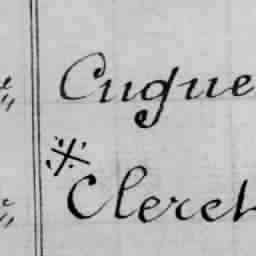 Cugue
※
Cleret